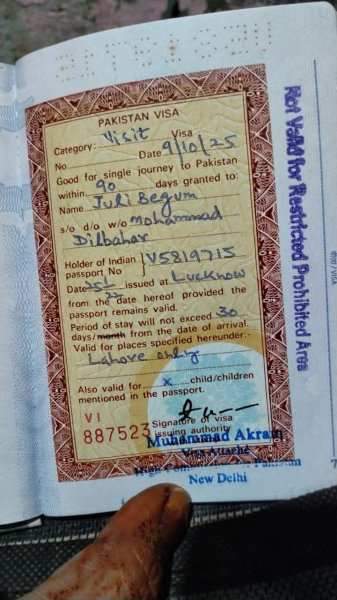 PAKISTAN VISA
Category: Visit Visa
No Date 9/10/25
Good for single journey to Pakistan
within 90 days granted to:
Name Juli Begum
s/o d/o w/o Mohammad
Dilbahar
Holder of Indian
passport No V5819715
Date issued at Lucknow
from the date hereof provided the
passport remains valid.
Period of stay will not exceed 30
days/month from the date of arrival.
Valid for places specified hereunder:-
Lahore only
Also valid for x child/children
mentioned in the passport.
VI
887523
Signature of visa
issuing authority
Muhammad Akram
Visa Attaché
High Commission Pakistan
New Delhi
Not Valid for Restricted Prohibited Area